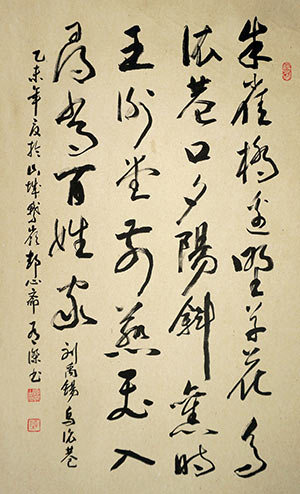 朱雀橋邊野草花烏
衣巷口夕陽斜舊時
王謝堂前燕飛入
尋常百姓家
刘禹錫烏衣巷
乙未年夏於山城鵝嶺静心斋